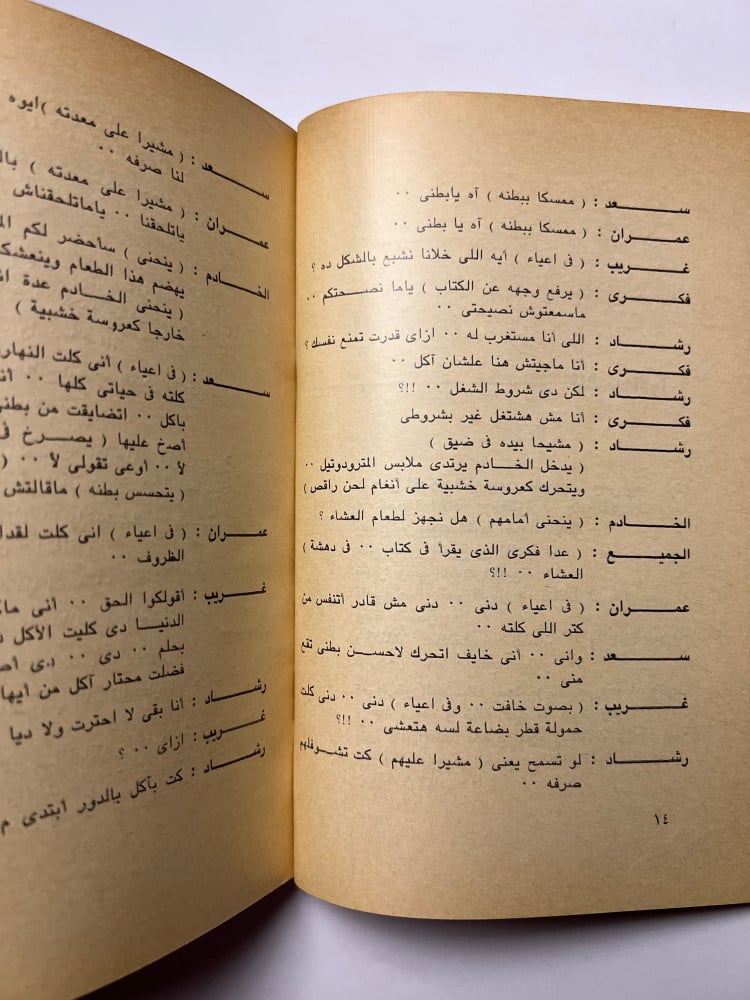 ســـــعد : ( ممسكا ببطنه ) آه يابطنى ٠٠
عمـــران : ( ممسكا ببطنه ) آه يا بطنى ٠٠
غـــريب : ( فى اعياء ) أيه اللى خلانا نشبع بالشكل ده ؟
فكـــرى : ( يرفع وجهه عن الكتاب ) ياما نصحتكم ٠٠
ماسمعتوش نصيحتى ٠٠
رشـــاد : اللى أنا مستغرب له ٠٠ ازاى قدرت تمنع نفسك ؟
فكـــرى : أنا ماجيتش هنا علشان آكل ٠٠
رشـــاد : لكن دى شروط الشغل ٠٠ !!؟
فكـــرى : أنا مش هشتغل غير بشروطى
رشـــاد : ( مشيحا بيده فى ضيق )
( يدخل الخـادم يرتدى ملابس المترودوتيل ٠٠
ويتحرك كعروسة خشبية على أنغام لحن راقص )
الخـــادم : ( ينحنى أمامهم ) هل نجهز لطعام العشاء ؟
الجميـــع : ( عدا فكرى الذى يقرأ فى كتاب ٠٠ فى دهشة )
العشاء ٠٠ !!؟
عمـــران : ( فى اعياء ) دنى ٠٠ دنى مش قادر أتنفس من
كتر اللى كلته ٠٠
ســـــعد : وانى ٠٠ أنى خايف اتحرك لاحسـن بطنى تقع
منى ٠٠
غـــريب : ( بصوت خافت ٠٠ وفى اعياء ) دنى ٠٠ دنى كلت
حمولة قطر بضاعة لسه هتعشى ٠٠ !!؟
رشـــاد : لو تسمح يعنى ( مشيرا عليهم ) كت تشـوفلهم
صرفه ٠٠
١٤
ســـــعد : ( مشيرا على معدته ) ايوه
لنا صرفه ٠٠
عمـــران : ( مشيرا على معدته )
ياتلحقنا ٠٠ ياماتلحقناش
الخـــادم : ( ينحنى ) سأحضر لكم
يهضم هذا الطعام وينعشكم
( ينحنى الخـادم عدة
خارجا كعروسة خشبية )
ســـــعد : ( فى اعياء ) أنى كلت النهار
كلته فى حياتى كلها ٠٠
باكل ٠٠ اتضايقت من بطنى
أصخ عليها ( يصـرخ
لأ ٠٠ أوعى تقولى لأ ٠٠ (
( يتحسس بطنه ) ماقالتش
عمـــران : ( فى اعياء ) انى كلت لقدا
الظروف ٠٠
غـــريب : أقولكوا الحق ٠٠ أنى
الدنيـا دى كليت الأكل
بحلم ٠٠ دى ٠٠
فضلت محتار آكل من أيها
رشـــاد : أنا بقى لا احترت ولا ديا
غـــريب : ازاى ٠٠ ؟
رشـــاد : كت بآكل بالدور أبتدى